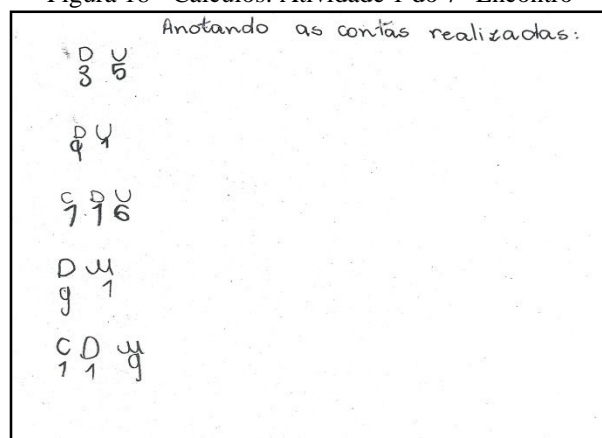 Figura 18 - Cálculos: Atividade 1 do 7º Encontro
Anotando as contas realizadas:
D U
3 5
D U
9 1
C D U
1 1 6
D U
9 1
C D U
1 1 9